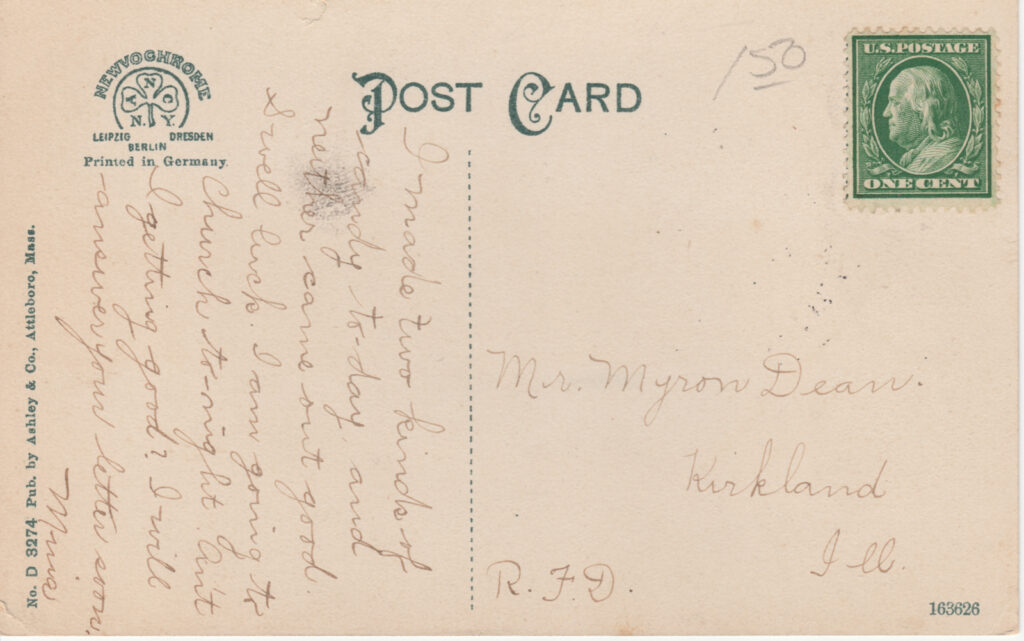 NEWVOCHROME
A N C
N. Y.
LEIPZIG DRESDEN
BERLIN
Printed in Germany.
POST CARD
150
U.S. POSTAGE
ONE CENT
I made two kinds of
candy to-day and
neither came out good.
Swell luck. I am going to
Church to-night. Ain't
I getting good? I will
answer your letter soon.
Mr. Myron Dean.
Kirkland
Ill.
R.F.D.
No. D 3274 Pub. by Ashley & Co., Attleboro, Mass.
163626